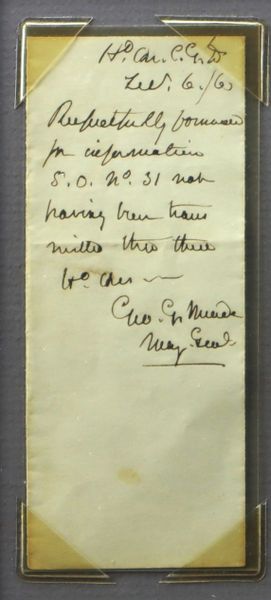 Hd. Qr. C. G. D.
Feb. 6. /63
Respectfully forwarded
for information
S. O. No. 31 not
having been trans
mitted thro these
Hd. Qrs —
Geo. G. Meade
Maj. Genl.